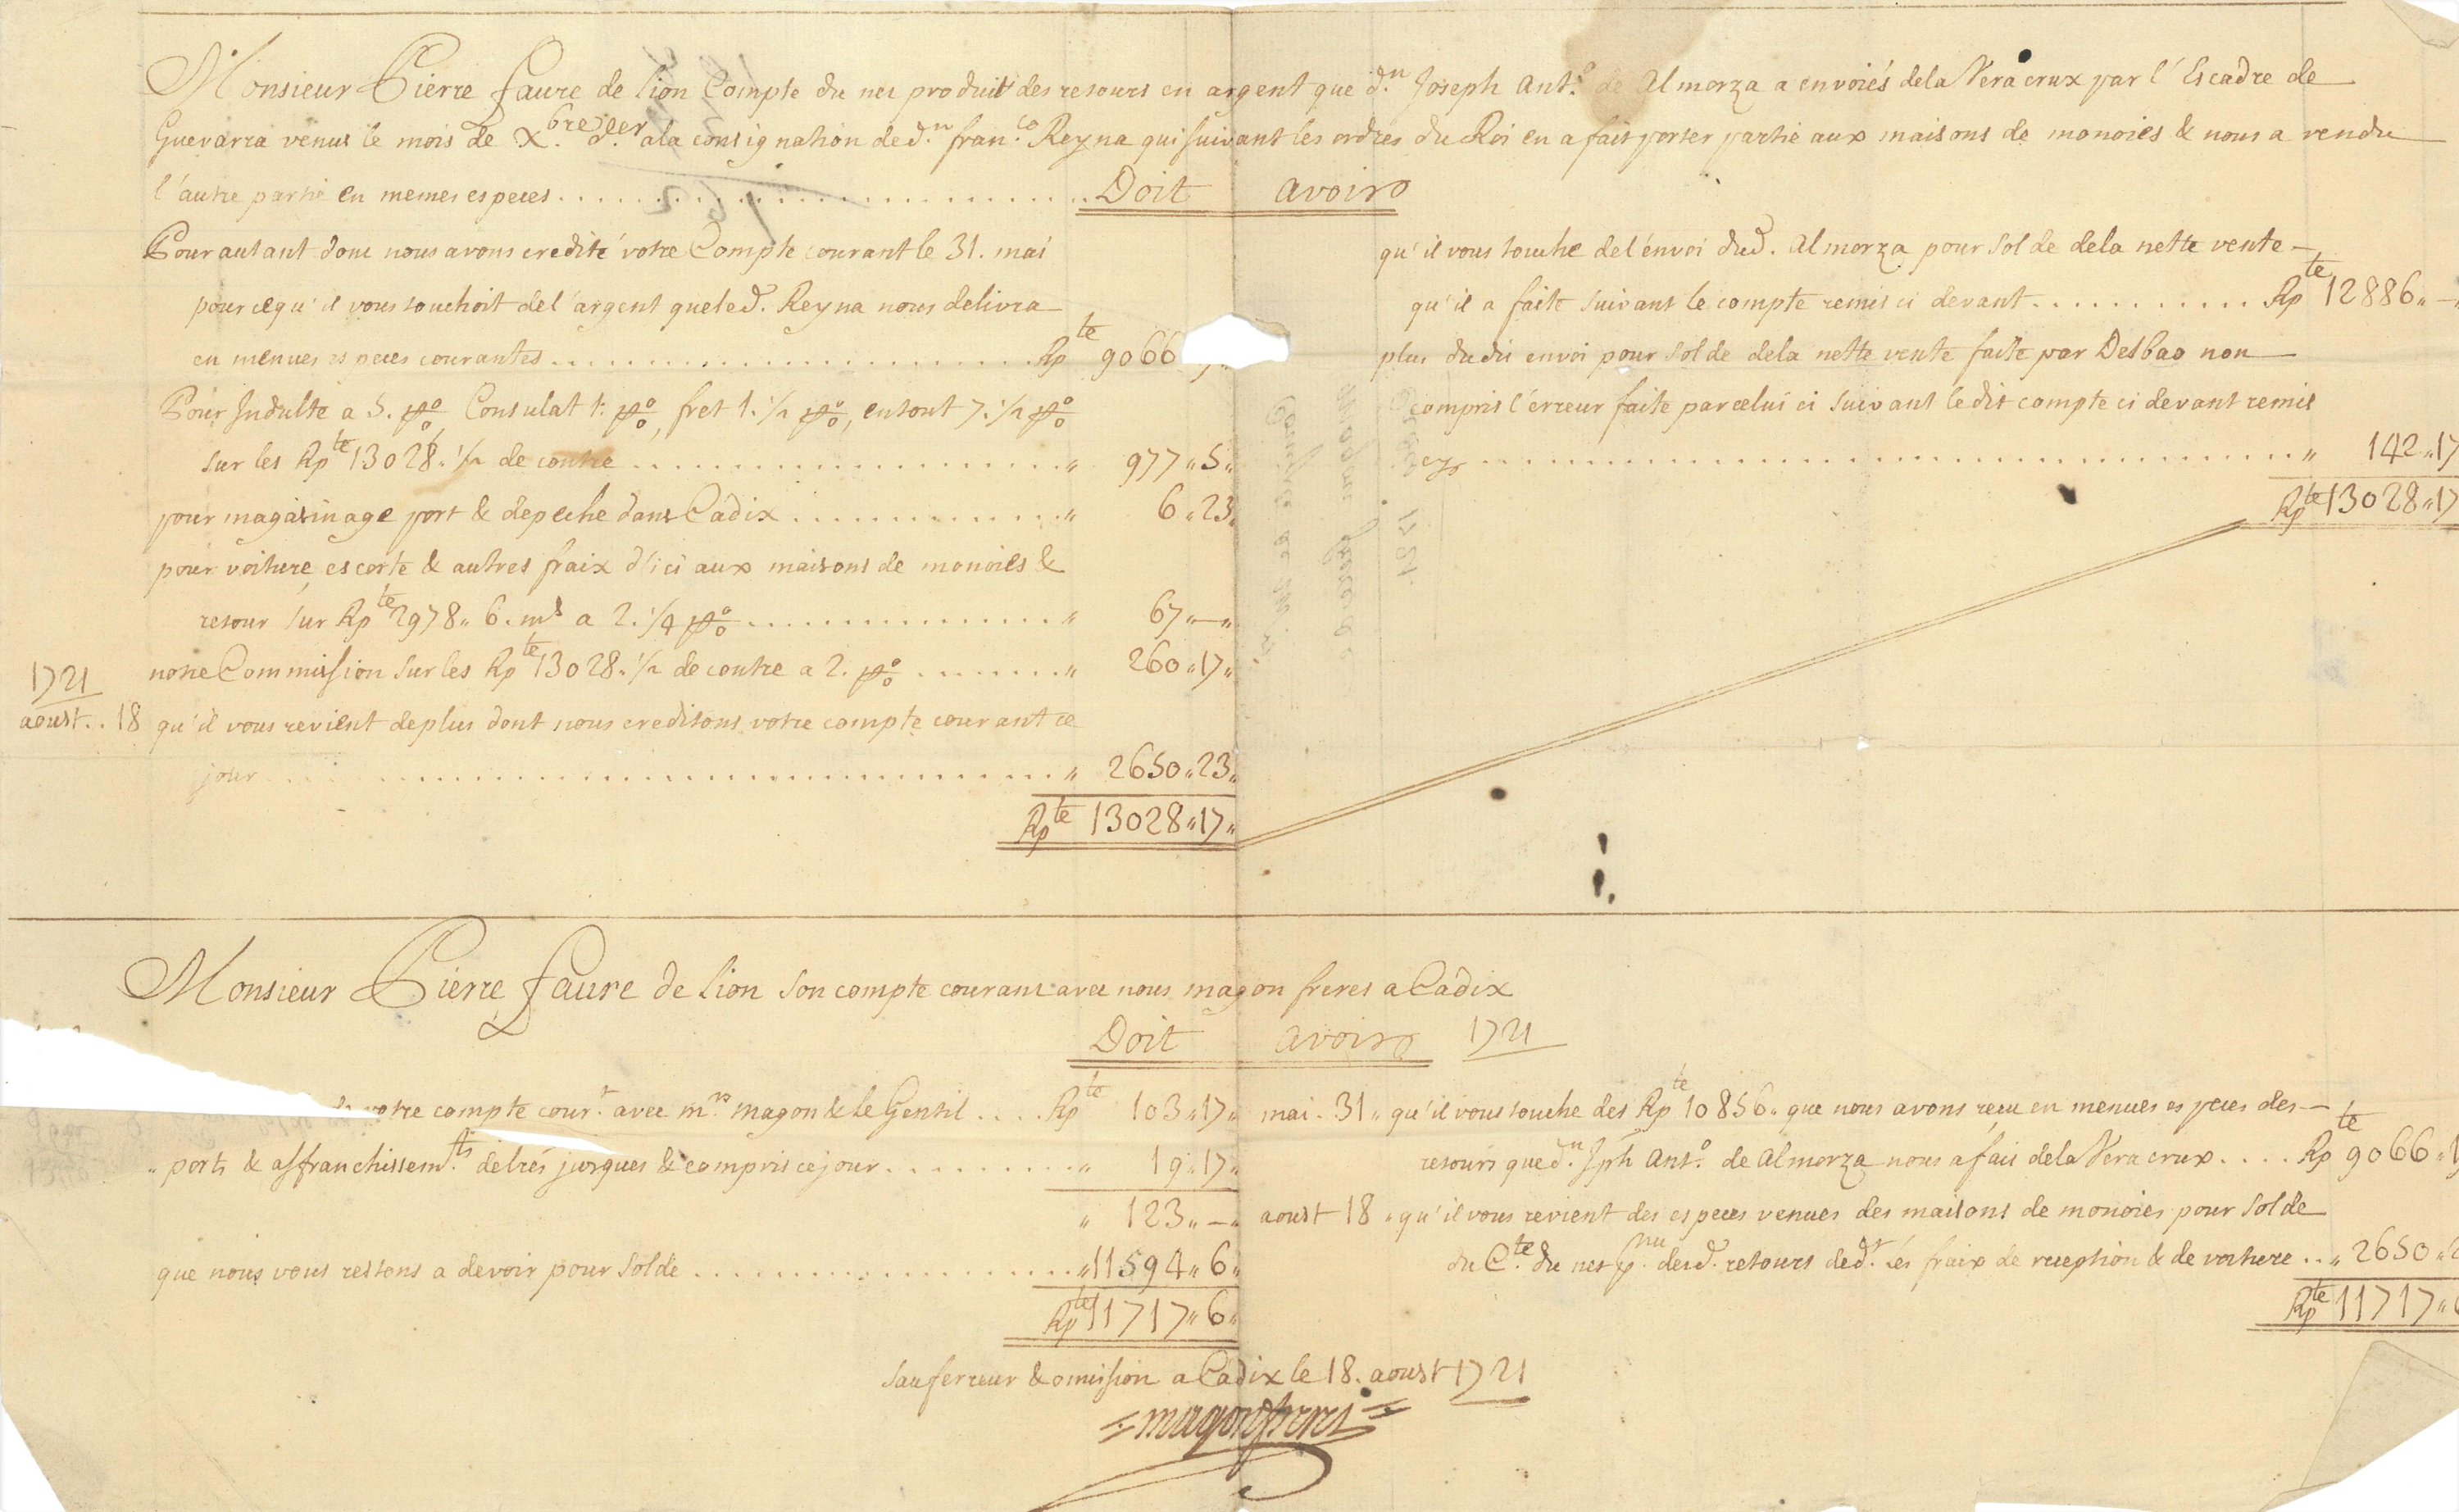 Monsieur Pierre faure de lion Compte du net produit des retours en argent que d.n Joseph Ant.o de Almorza a envoiés dela Vera crux par l'Escadre de
Guevarra venus le mois de X.bre d.er ala consignation de d.n fran.co Reyna qui suivant les ordres du Roi en a fait porter partie aux maisons de monoies & nous a vendu
l'autre partie en memes especes . . . . . . . . . . Doit avoir
Pour autant donc nous avons credité votre Compte courant le 31. mai
pour cequ'il vous touchoit del'argent queled. Reyna nous delivra
en menues especes courantes . . . . . . . . . . Rp te 9066
Pour Indulte a 5. p%, Consulat 1. p%, fret 1. 1/2 p%, entout 7. 1/2 p%
sur les Rp te 13028. 1/2 de contre . . . . . . . . . . " 977 " 5 "
pour magasinage port & depeche dans Cadix . . . . . . . . . . " 6 " 23 "
pour voiture, escorte & autres fraix d'ici aux maisons de monoies &
retour sur Rp te 2978 " 6. ms a 2. 1/4 p% . . . . . . . . . . " 67 " — "
notre Commission sur les Rp te 13028. 1/2 de contre a 2. p% . . . . . . . " 260 " 17 "
1721
aoust . . 18 qu'il vous revient deplus dont nous creditons votre compte courant ce
jour . . . . . . . . . . " 2650 " 23 "
Rp te 13028 " 17 "
qu'il vous touche del'envoi dud. Almorza pour solde dela nette vente —
qu'il a faite suivant le compte remis ci devant . . . . . . . . . . Rp te 12886 " —
plus dudit envoi pour solde dela nette vente faite par Delbao non
compris l'erreur faite par celui ci suivant le dit compte ci devant remis
cy . . . . . . . . . . " 142 " 17
Rp te 13028 " 17
Monsieur Pierre faure de lion son compte courant avec nous magon freres a Cadix
Doit avoir 1721
votre compte cour.t avec m.rs magon & le Gentil . . . . Rp te 103 " 17 "
" ports & affranchissem.ts deltres jusques & compris cejour . . . . . . . . . " 19 " 17 "
" 123 " — "
que nous vous restons a devoir pour solde . . . . . . . . . . " 11594 " 6 "
Rp te 11717 " 6 "
mai . 31 " qu'il vous touche des Rp te 10856 " que nous avons reçu en menues especes des —
retours que d.n Jph Ant.o de Almorza nous a fait dela Vera crux . . . . Rp te 9066 "
aoust 18 " qu'il vous revient des especes venues des maisons de monoies pour solde
du C.te du net p.nu desd. retours ded.t les fraix de reception & de voiture . . " 2650 "
Rp te 11717 "
Sauf erreur & omission a Cadix le 18. aoust 1721
magon freres